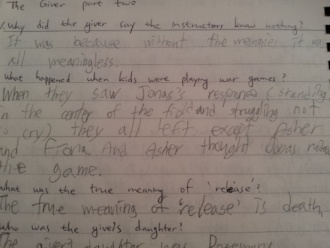 The Giver part two
1. Why did the giver say the instructors know nothing?
It was because without the memories it was
all meaningless.
what happened when kids were playing war games?
When they saw Jonas's response (standing
in the center of the field and struggling not
to cry) they all left except Asher
and Fiona And Asher thought Jonas
the game.
what was the true meaning of 'release'?
The true meaning of 'release' is death.
Who was the giver's daughter?
The giver's daughter was Rosemary